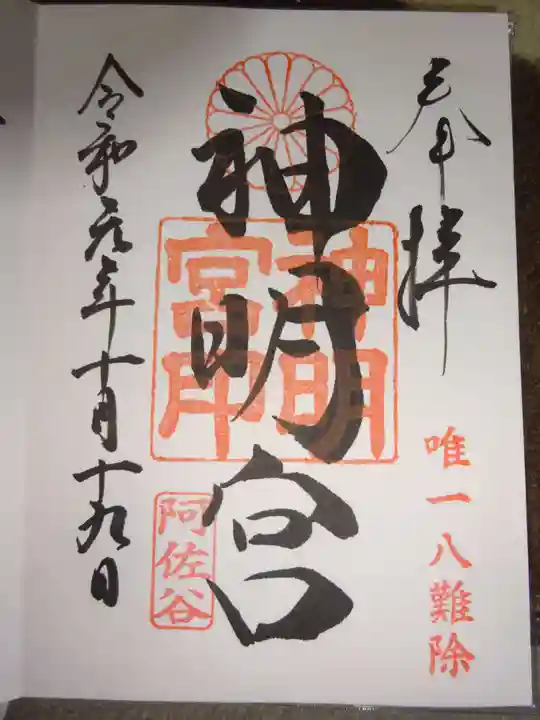 奉拝
唯一八難除
神明宮
神明
宮印
阿佐谷
令和元年十月十九日